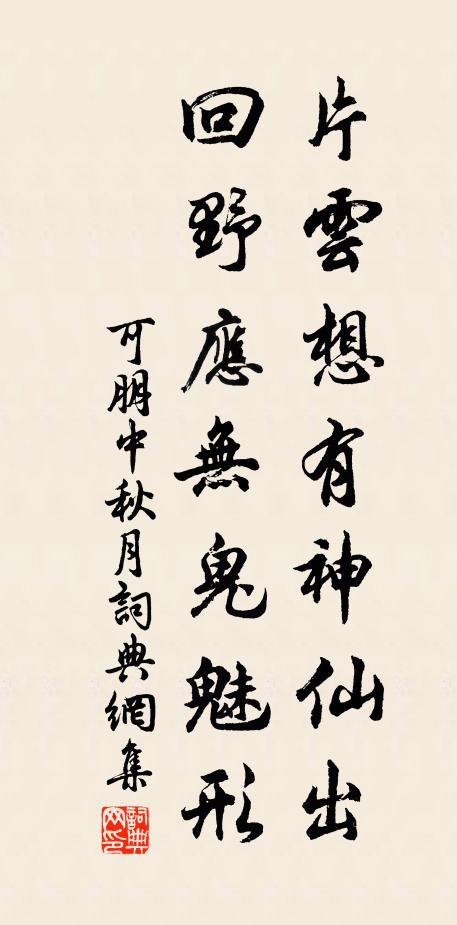 片雲想有神仙出
回野應無鬼魅形
可朋中秋月詞典網集
詞典
网印